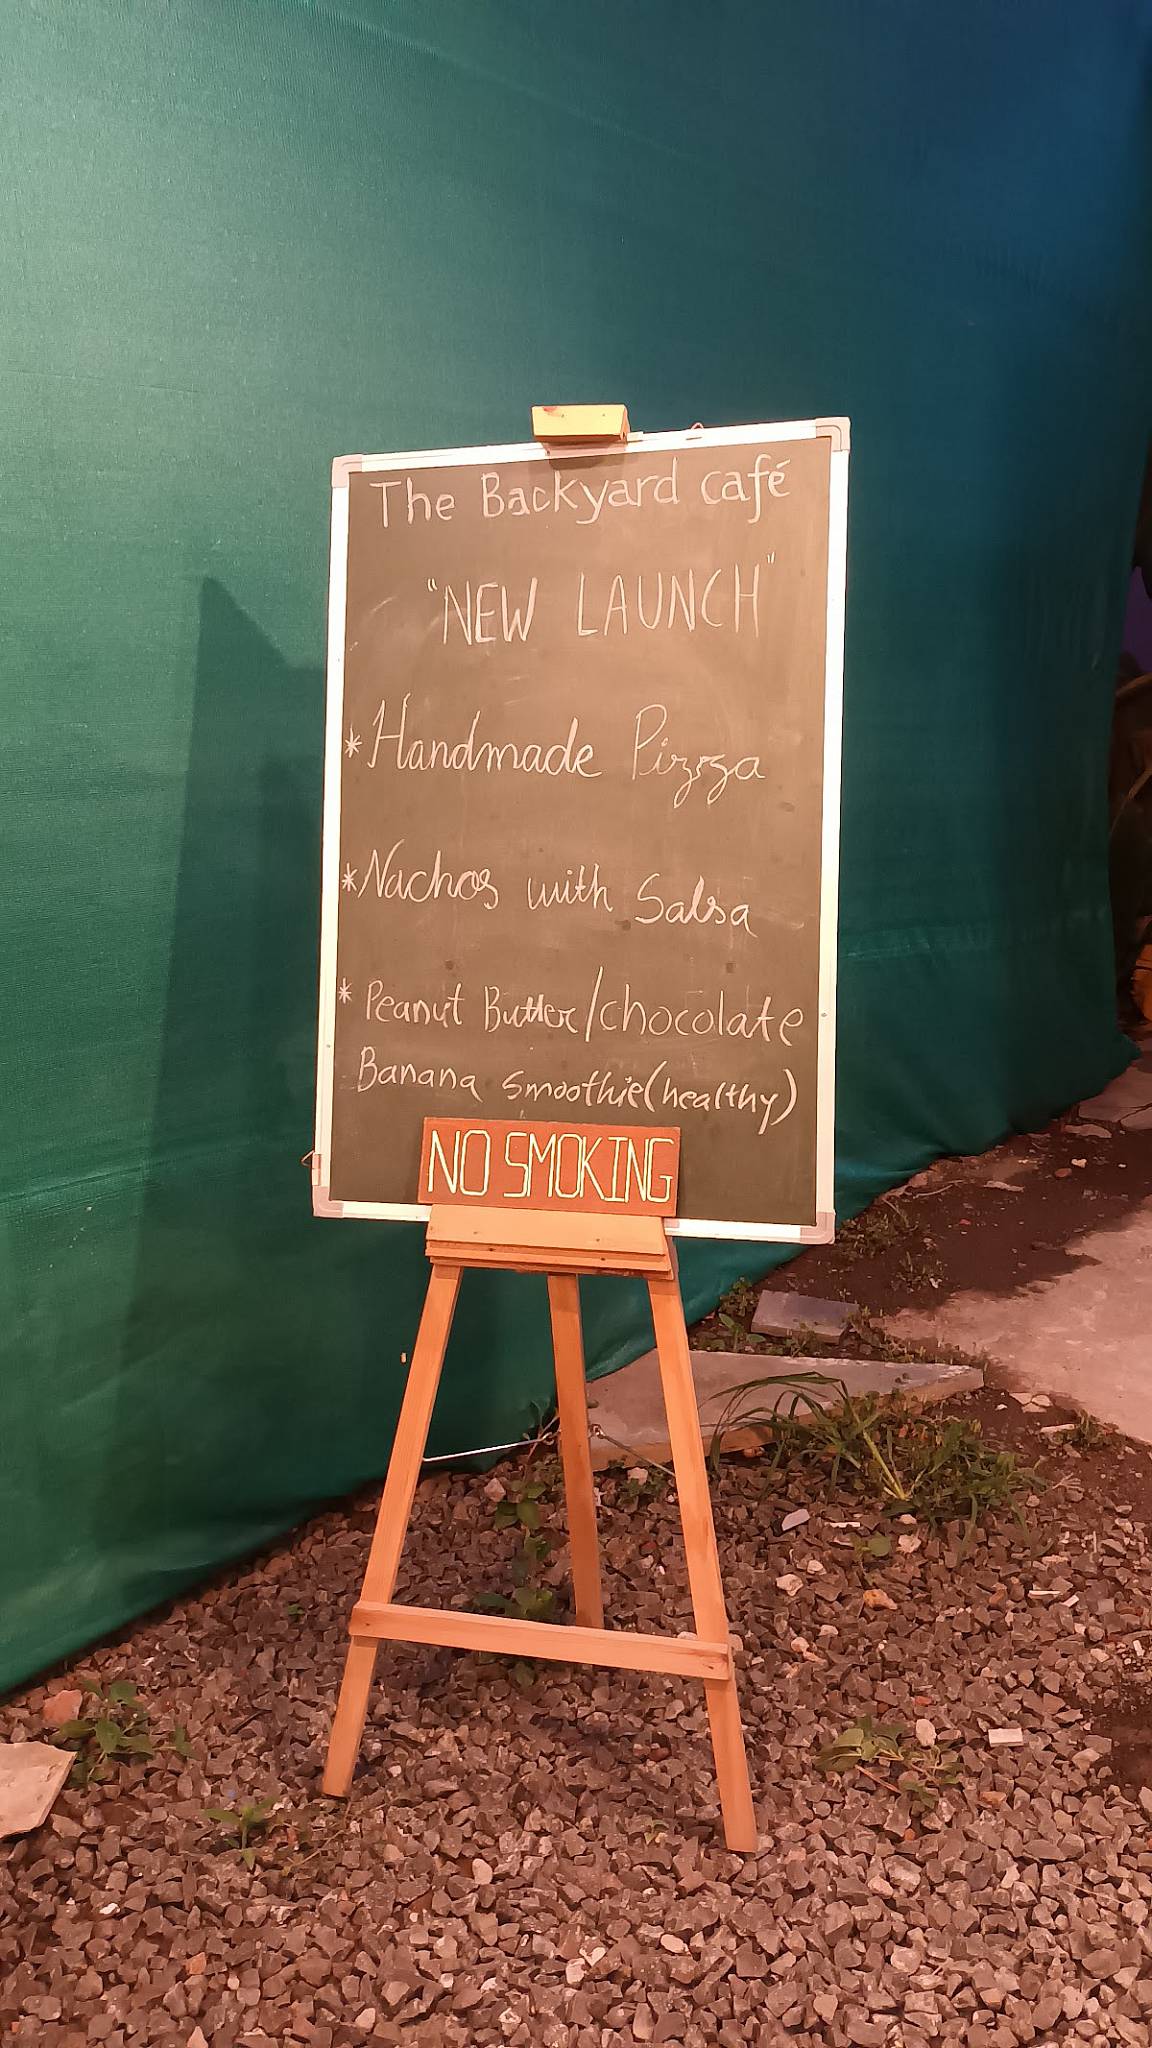 The Backyard café
"NEW LAUNCH"
* Handmade Pizza
* Nachos with Salsa
* Peanut Butter/chocolate
Banana smoothie(healthy)
NO SMOKING